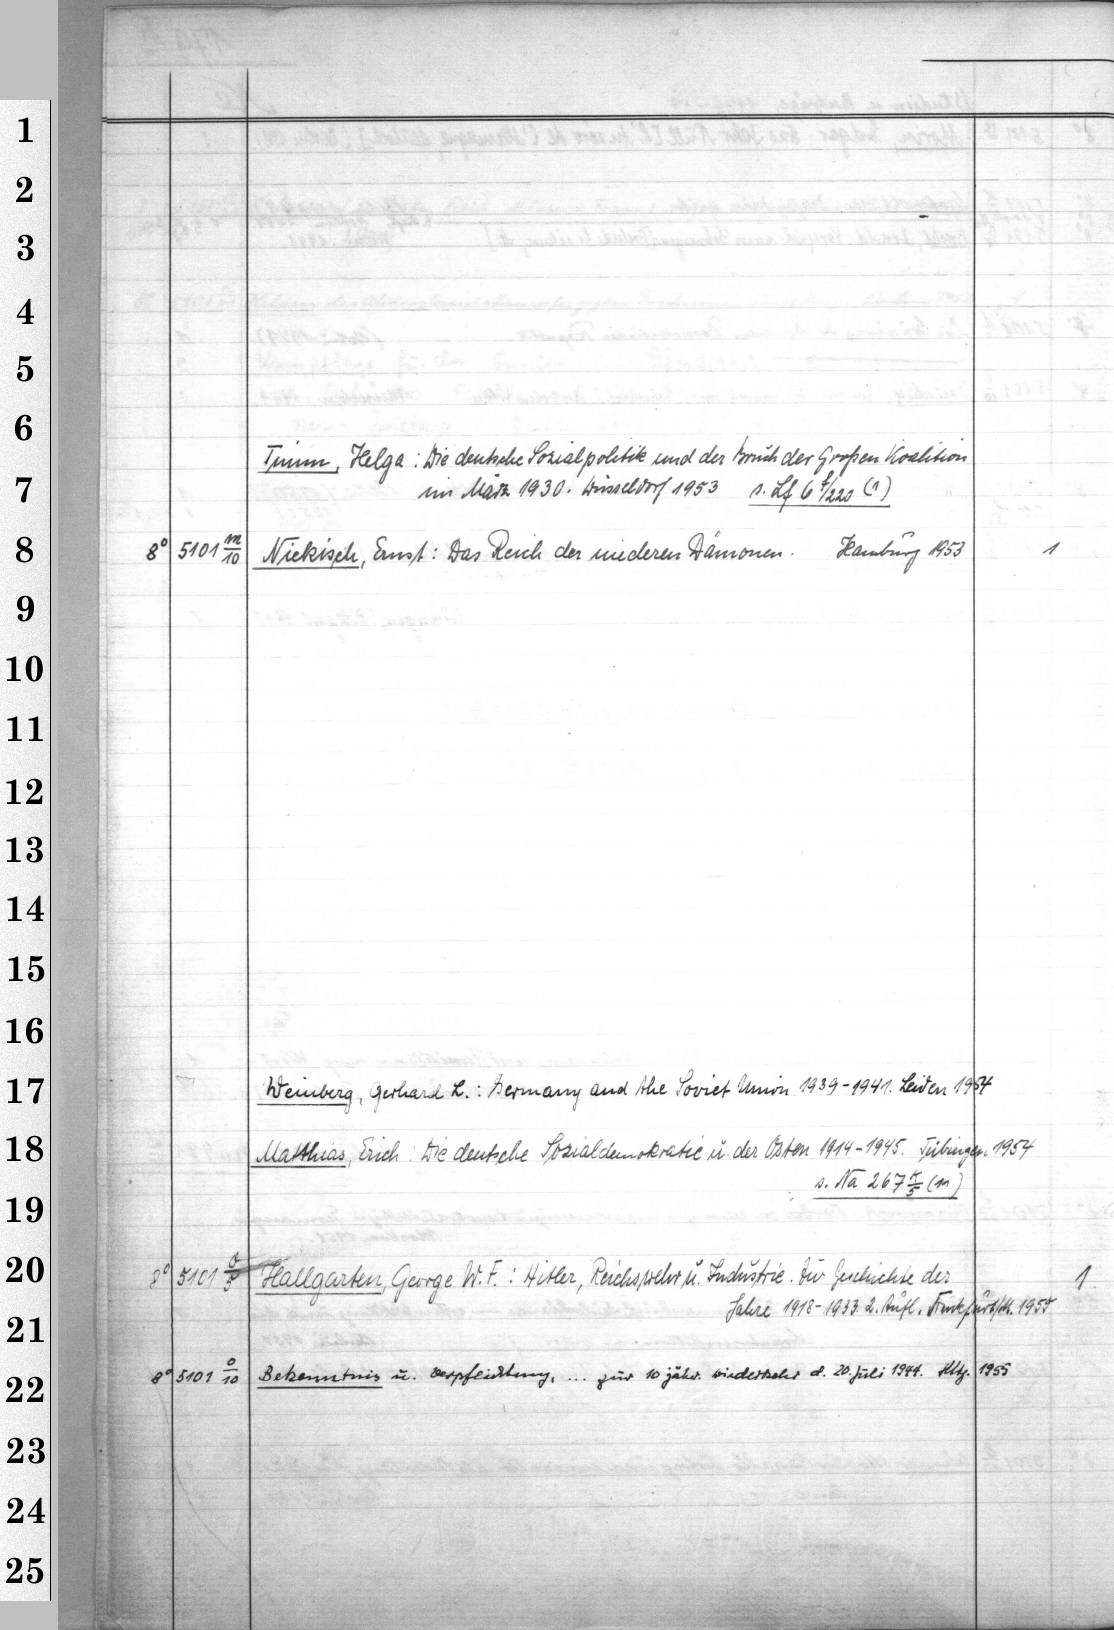 1
2
3
4
5
6
Timm, Helga: Die deutsche Sozialpolitik und der Bruch der Großen Koalition
7
im März 1930. Düsseldorf 1953 s. Lf 6 f/220 (1)
8
8° 5101 m/10 Niekisch, Ernst: Das Reich der niederen Dämonen. Hamburg 1953 1
9
10
11
12
13
14
15
16
17
Weinberg, Gerhard L.: Germany and the Soviet Union 1939-1941. Leiden 1954
18
Matthias, Erich: Die deutsche Sozialdemokratie u. der Osten 1914-1945. Tübingen 1954
s. Na 267 K/5 (m)
19
20
8° 5101 o/5 Hallgarten, George W. F.: Hitler, Reichswehr u. Industrie. Zur Geschichte der 1
21
Jahre 1918-1933. 2. Aufl. Frankfurt/M. 1955
22
8° 5101 o/10 Bekenntnis u. Verpflichtung, ... zur 10 jähr. Wiederkehr d. 20. Juli 1944. Stttg. 1955
23
24
25